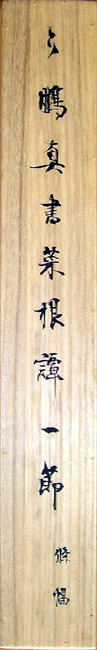 鵬真書菜根譚一節 條幅